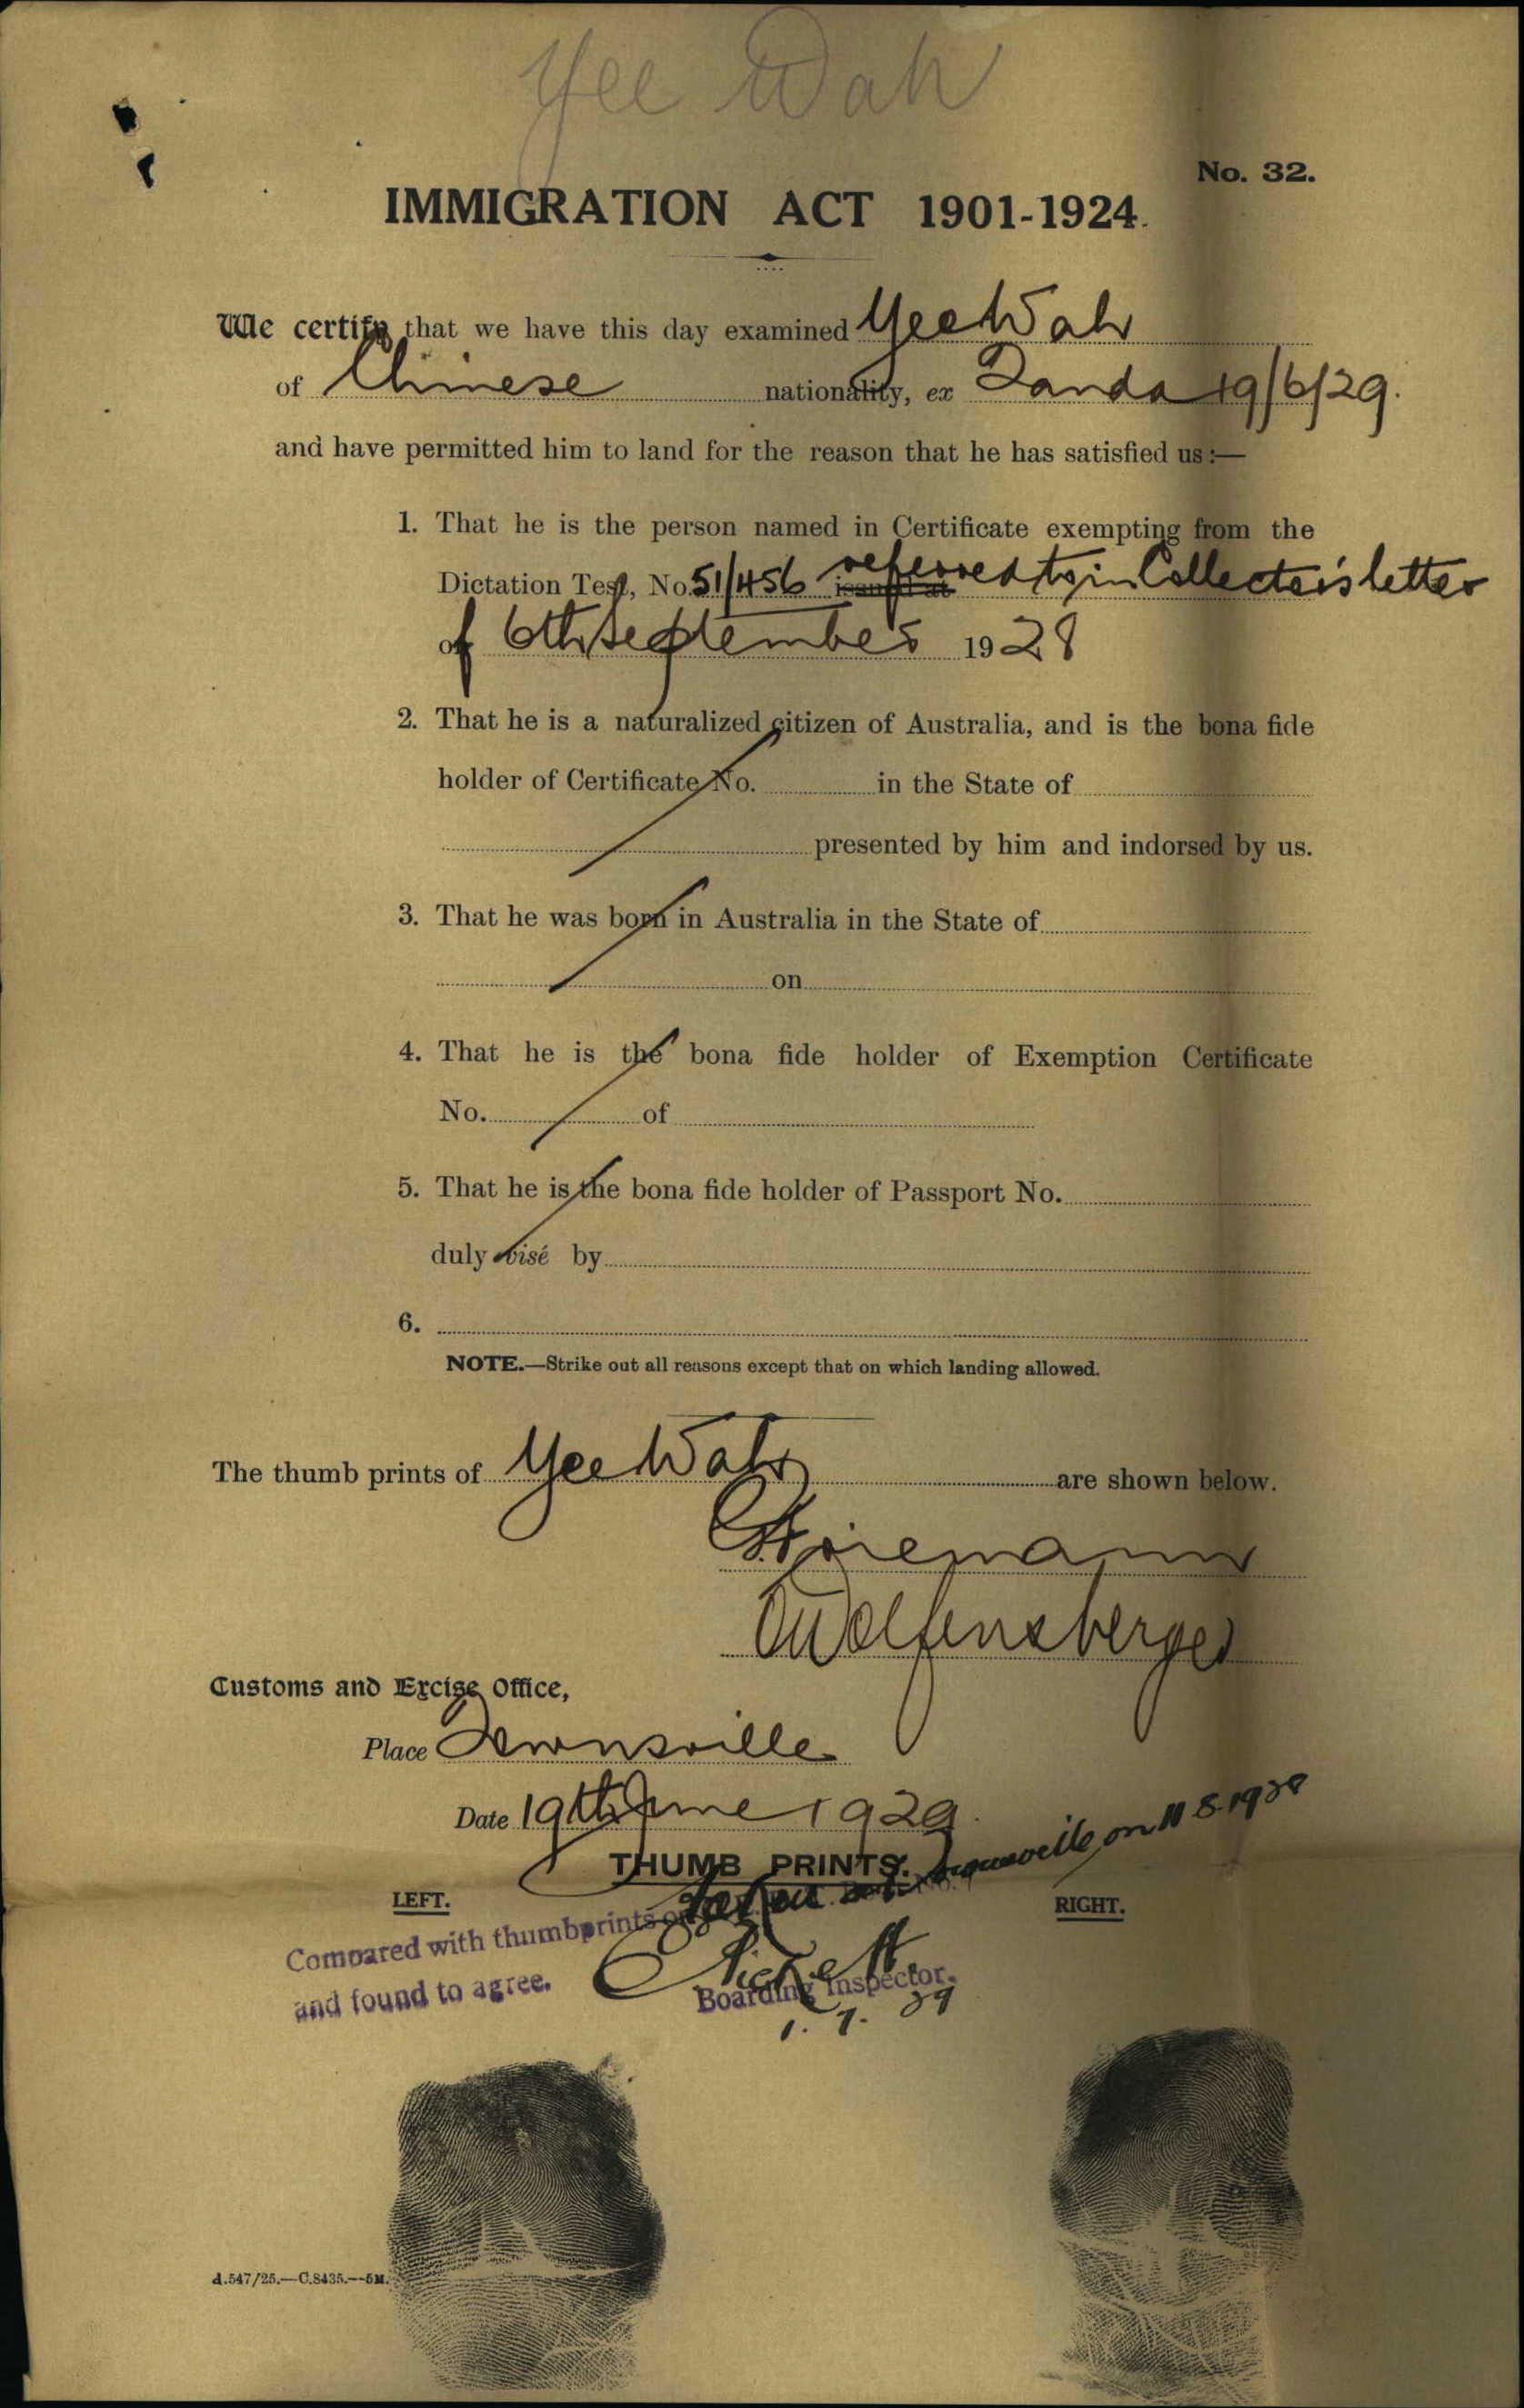 Yee Wah
No. 32.
IMMIGRATION ACT 1901-1924.
We certify that we have this day examined Yee Wah
of Chinese nationality, ex Tanda 19/6/29.
and have permitted him to land for the reason that he has satisfied us:—
1. That he is the person named in Certificate exempting from the
Dictation Test, No. 51/456 issued at referred to in Collector's letter
of 6th September 1928
2. That he is a naturalized citizen of Australia, and is the bona fide
holder of Certificate No. in the State of
presented by him and indorsed by us.
3. That he was born in Australia in the State of
on
4. That he is the bona fide holder of Exemption Certificate
No. of
5. That he is the bona fide holder of Passport No.
duly visé by
6.
NOTE.—Strike out all reasons except that on which landing allowed.
The thumb prints of Yee Wah are shown below.
Wolfensberger
Customs and Excise Office,
Place Townsville
Date 19th June 1929.
THUMB PRINTS.
taken at Townsville on 11 8 1928
LEFT. RIGHT.
Compared with thumbprints on
and found to agree.
Boarding Inspector.
1. 7. 29
A.547/25.—C.8435.—5M.